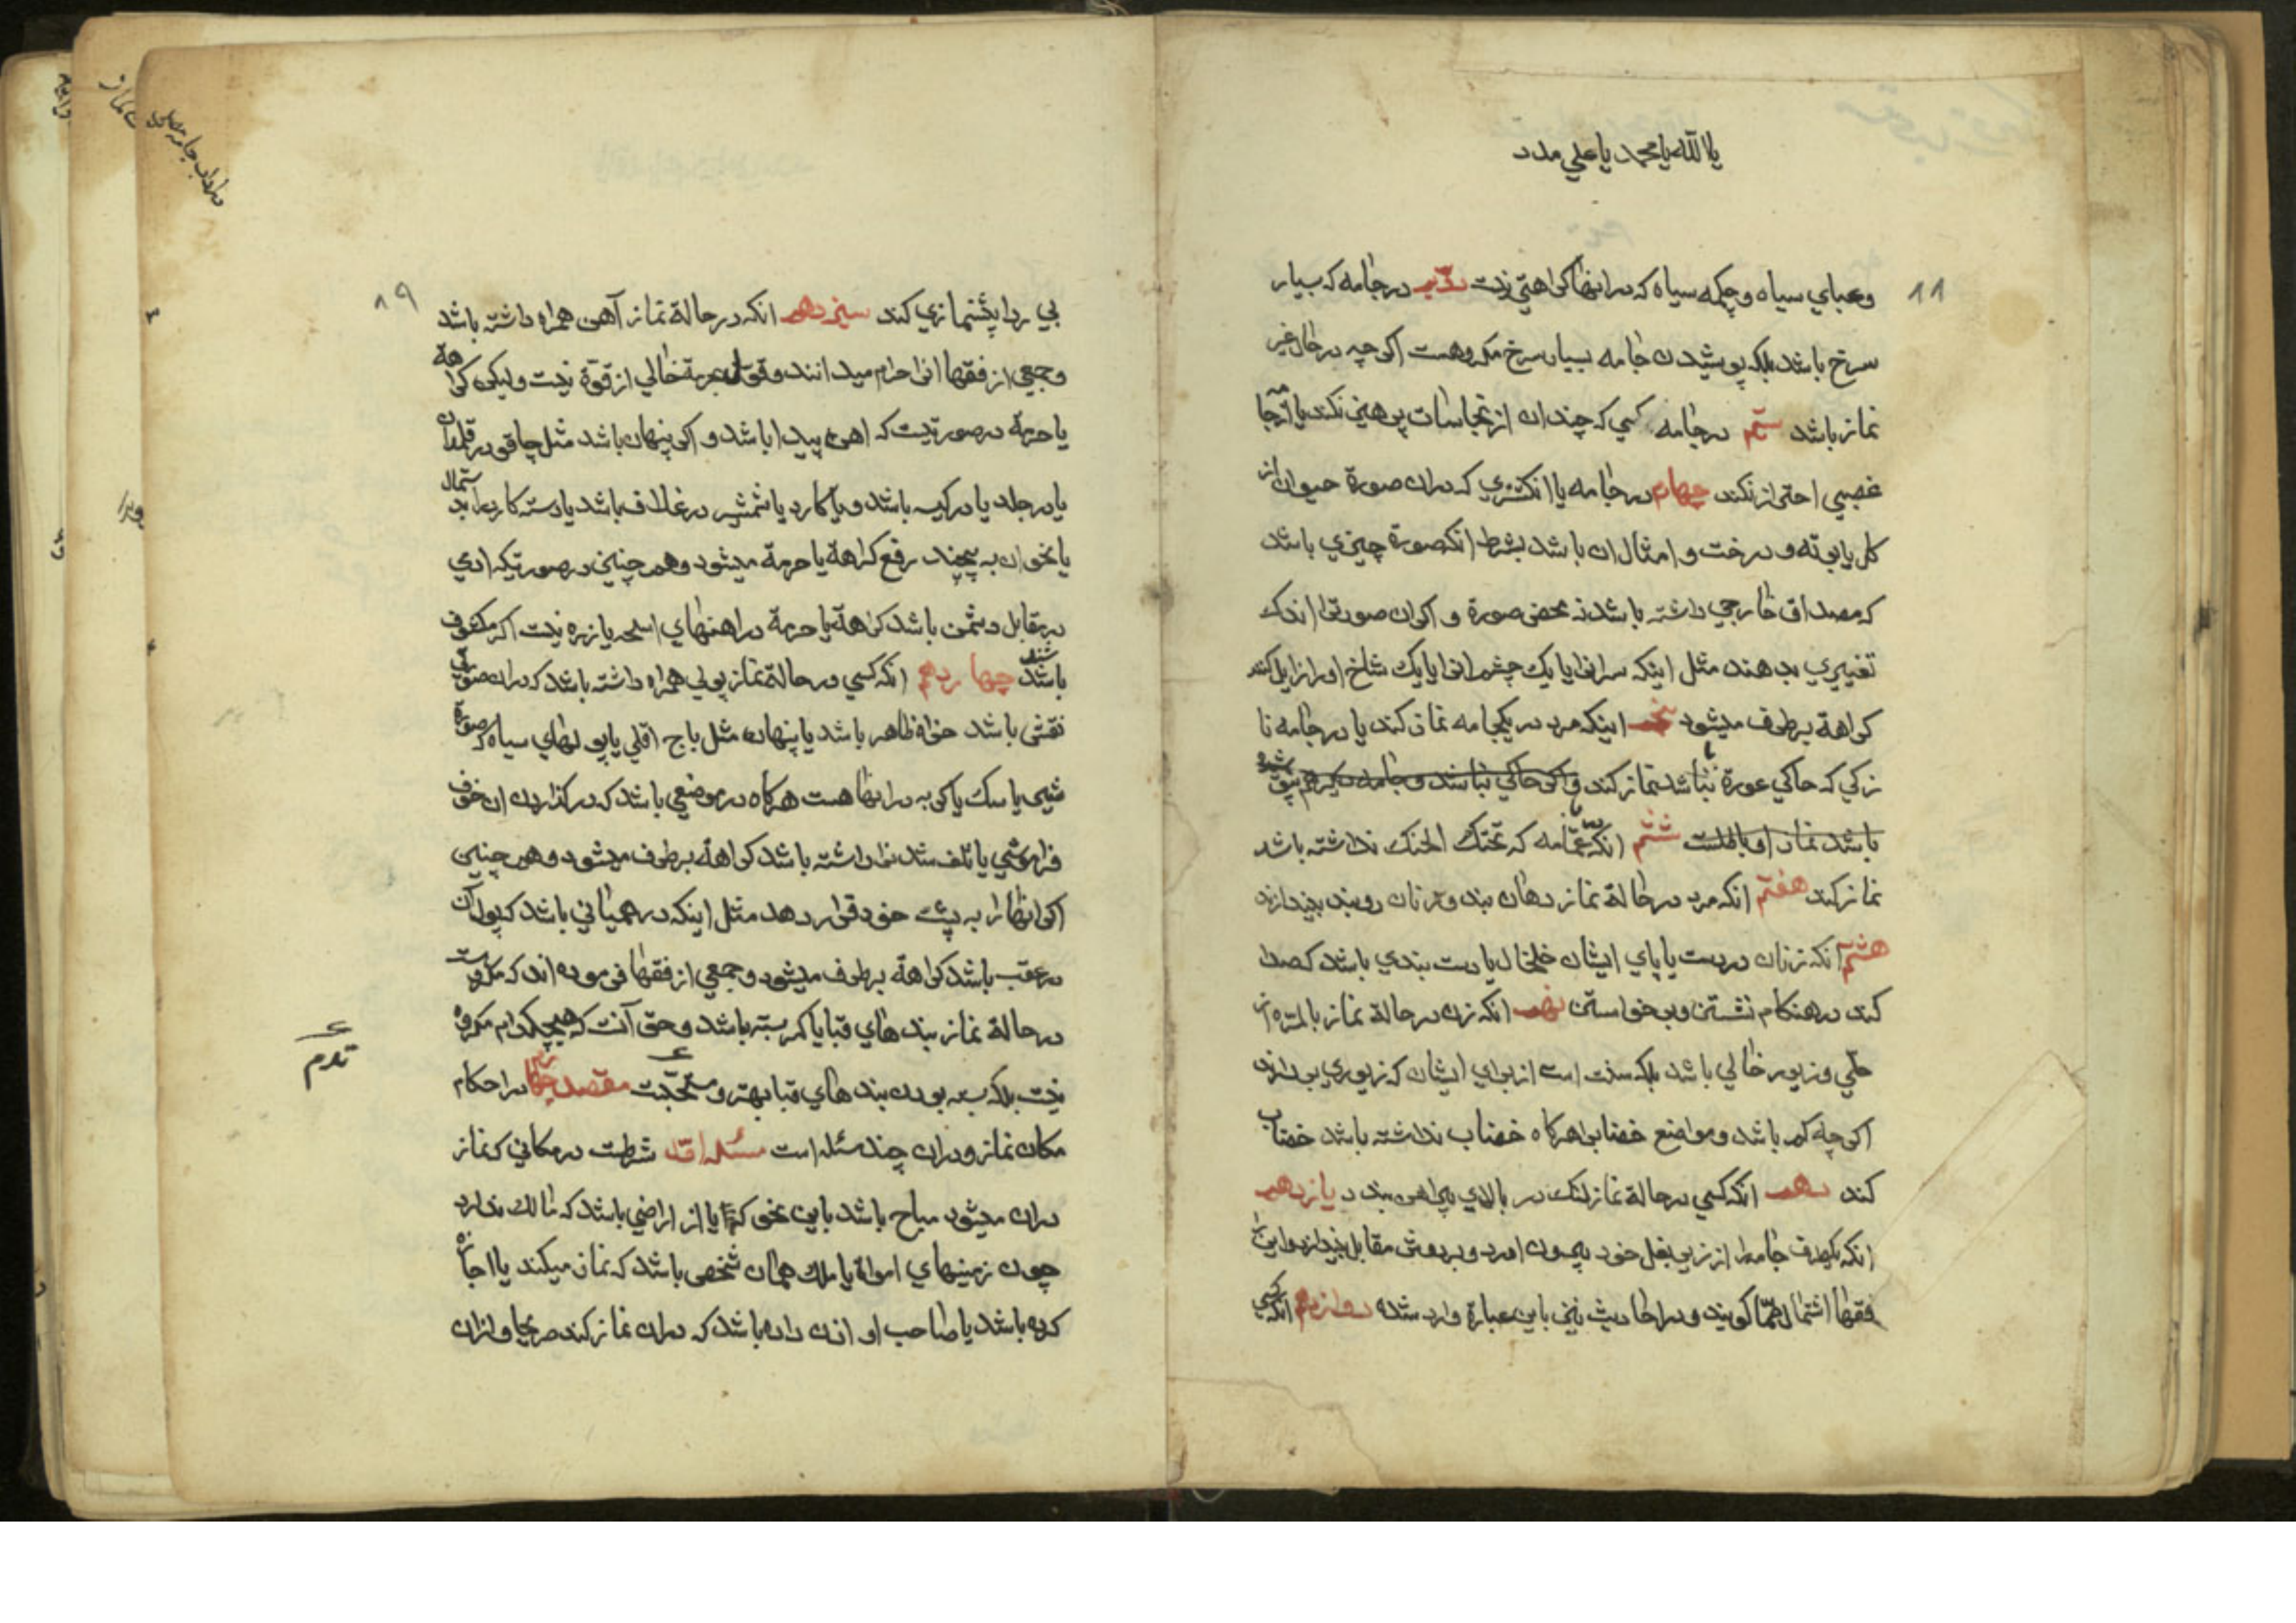 یا الله یا محمد یا علی مدد
۸۸
وعبای سیاه و چکمه سیاه که در اینها کراهتی نیست دوّیم در جامه که بسیار
سرخ باشد بلکه پوشیدن جامه بسیار سرخ مکروهست اکر چه در حال غیر
نماز باشد سیّم در جامه کسی که چندان از نجاسات پرهیز نکند یا از جامه
غصبی احتراز نکند چهارم در جامه یا انکشتری که در ان صورة حیوان از
کل یا بوته و درخت و امثال ان باشد بشرط انکه صورة چیزی باشد
که مصداق خارجی داشته باشد نه محض صورة و اکر ان صورتی را اندک
تغییری بدهند مثل اینکه سر انرا یا یک چشم انرا یا یک شاخ او را زایل کنند
کراهة برطرف میشود پنجم اینکه مرد در یکجامه نماز کند یا در جامه نا
زکی که حاکی عورة نباشد نماز کند و اکر حاکی نباشد و جامه دیکر هم پوشیده
باشد نماز او باطلست ششم انکه با عمّامه که تحتک الحنک نداشته باشد
نماز کند هفتم انکه مرد در حالة نماز دهان بند و زنان روبند بیندازند
هشتم انکه زنان در دست یا پای ایشان خلخال یا دست بندی باشد که صدا
کند در هنکام نشستن و برخواستن نهم انکه زن در حالة نماز بالمرّه از
حلّی و زیور خالی باشد بلکه سنت است از برای ایشان که زیوری بردارند
اکر چه کم باشد و مواضع خضاب را هرکاه خضاب نداشته باشد خضاب
کند دهم انکه کسی در حالة نماز لنک در بالای پیراهن بندد یازدهم
انکه یکطرف جامه را از زیر بغل خود بیرون اورد و بر دوش مقابل بیندازد و این را
فقها اشتمال صمّا کویند و در احادیث نیز باین عبارة وارد شده دوازدهم انکه کسی
۸۹
بی ردا پیشنمازی کند سیزدهم انکه در حالة نماز آهن همراه داشته باشد
و جمعی از فقها انرا حرام میدانند و قول بحرمة خالی از قوّة نیست و لیکن کراهة
یا حرمة در صورتیست که اهن پیدا باشد و اکر پنهان باشد مثل چاقو در قلمدان
یا در جلد یا در کیسه باشد و یا کارد یا شمشیر در غلاف باشد یا دسته کارد را بدستمال
یا نخوان به پیچند رفع کراهة یا حرمة میشود و هم چنین در صورتیکه ادمی
در مقابل دشمن باشد کراهة یا حرمة در اهنهای اسلحه یا زره نیست اکر مکشوف
باشد چهاردهم انکه کسی در حالة نماز پولی همراه داشته باشد که در ان صورتی
نقشی باشد خواه ظاهر باشد یا پنهان مثل باج اقلی یا پولهای سیاه که صورة
شیر یا سک یا کربه در انها هست هرکاه در موضعی باشد که در کذاردن ان خوف
فراموشی یا تلف شدن را داشته باشد کراهة برطرف میشود و هم چنین
اکر انها را به پشت خود قرار دهد مثل اینکه در همیانی باشد که پول ان
در عقب باشد کراهة برطرف میشود و جمعی از فقها فرموده اند که مکروهست
در حالة نماز بندهای قبا یا کمر بسته باشد و حق آنست که هیچکدام مکروه
نیست بلکه بسته بودن بندهای قبا بهتر و مستحبّست مقصد چهارم در احکام
مکان نماز و در ان چند مسئله است مسئله اوّل شرطست در مکانی که نماز
در ان میشود مباح باشد باین نحو که یا از اراضی باشد که مالک ندارد
چون زمینهای امواة یا ملک همان شخص باشد که نماز میکند یا اجاره
کرده باشد یا صاحب او اذن داده باشد که در ان نماز کند صریحا و از ان